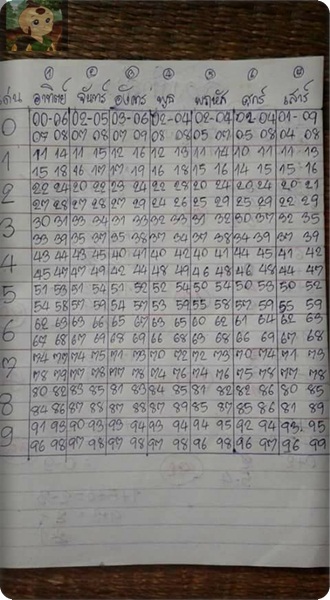 ① ② ③ ④ ⑤ ⑥ ⑦
เด่น อาทิตย์ จันทร์ อังคาร พุธ พฤหัส ศุกร์ เสาร์
0 00-06 02-05 03-06 02-04 02-04 02-04 01-09
07 08 07 08 07 09 08-08 05 07 05 08 04 08
1 11 14 11 15 12 16 12 13 11 14 10 11 11 13
15 18 16 17 17 19 16 18 15 16 14 15 15 16
2 22 24 20 22 23 24 22 28 20 24 20 24 20 21
27 28 27 28 27 29 24 26 25 29 25 29 22 29
3 30 31 33 34 31 33 32 33 31 32 30 37 32 35
33 39 35 37 35 38 37 34 37 38 34 39 37 39
4 43 44 43 45 40 41 40 42 41 40 44 45 41 42
45 47 47 49 42 44 48 49 46 48 46 48 44 47
5 51 53 51 54 51 52 52 54 50 54 50 53 50 52
54 58 57 59 54 57 53 59 55 58 57 59 55 59
6 62 63 63 66 65 67 63 65 60 62 61 64 62 65
67 68 67 69 68 69 66 68 63 68 66 69 67 68
7 74 75 71 73 70 72 72 73 70 74 71 73
78 79 77 78 77 78 74 76 74 76 75 78 77 78
8 80 82 83 85 81 83 84 85 81 82 82 86 80 85
84 86 87 88 87 88 87 89 85 87 85 86 81 89
9 91 93 90 93 93 94 93 94 94 95 92 94 93 95
96 98 97 98 97 98 97 98 96 98 96 97 96 99